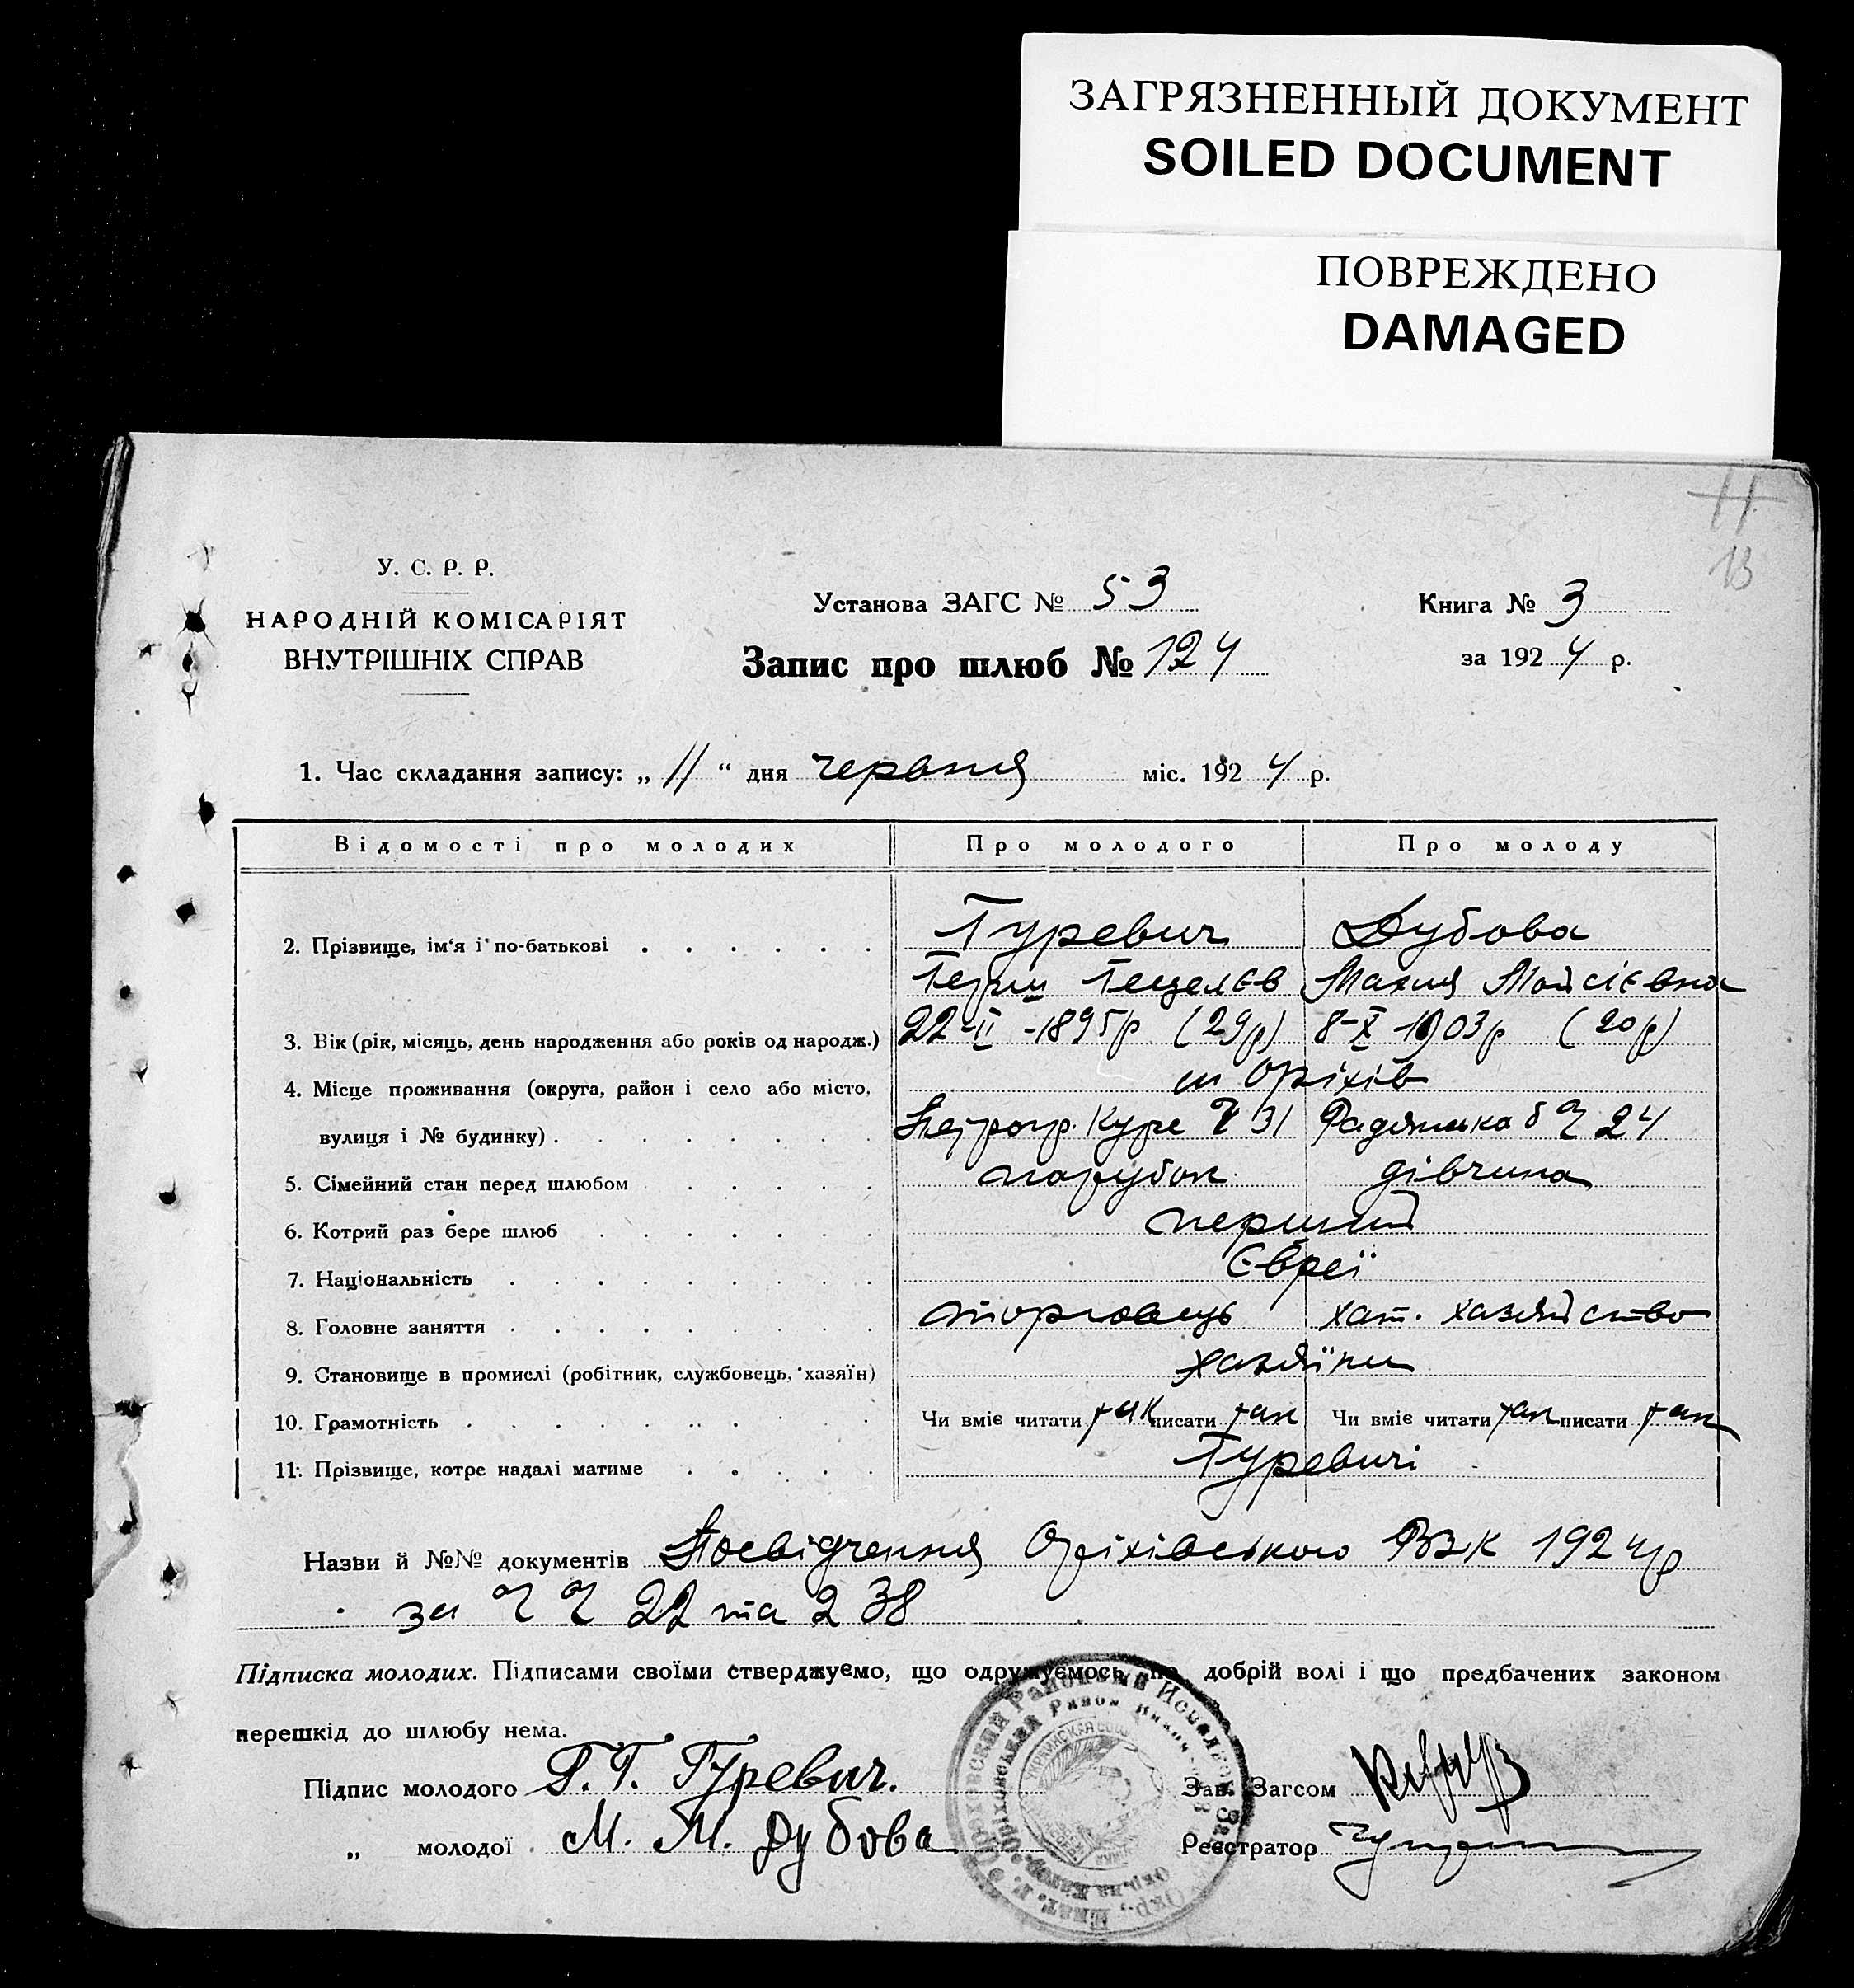 ЗАГРЯЗНЕННЫЙ ДОКУМЕНТ
SOILED DOCUMENT
ПОВРЕЖДЕНО
DAMAGED
11
13
У. С. Р. Р.
НАРОДНІЙ КОМІСАРІЯТ
ВНУТРІШНІХ СПРАВ
Установа ЗАГС № 53
Запис про шлюб № 124
Книга № 3
за 1924 р.
1. Час складання запису: „ 11 “ дня червня міс. 1924 р.
Відомості про молодих Про молодого Про молоду
2. Прізвище, ім'я і по-батькові Гуревич Дубова
Герш Гецелєв Махля Мойсієвна
3. Вік (рік, місяць, день народження або років од народж.) 22-II-1895р (29р) 8-X-1903р (20р)
4. Місце проживання (округа, район і село або місто, м Оріхів
вулиця і № будинку) № 31 Радянська б № 24
5. Сімейний стан перед шлюбом парубок дівчина
6. Котрий раз бере шлюб перший
7. Національність Євреї
8. Головне заняття торговець хат. хазяйство
9. Становище в промислі (робітник, службовець, хазяїн) хазяїни
10. Грамотність Чи вміє читати так писати так Чи вміє читати так писати так
11. Прізвище, котре надалі матиме Гуревичі
Назви й №№ документів Посвідчення Оріхівського РВК 1924р
за №№ 22 та 238
Підписка молодих. Підписами своїми стверджуємо, що одружуємось по добрій волі і що предбачених законом
перешкід до шлюбу нема.
Підпис молодого Г. Г. Гуревич. Зав. Загсом
„ молодої М. М. Дубова Реєстратор